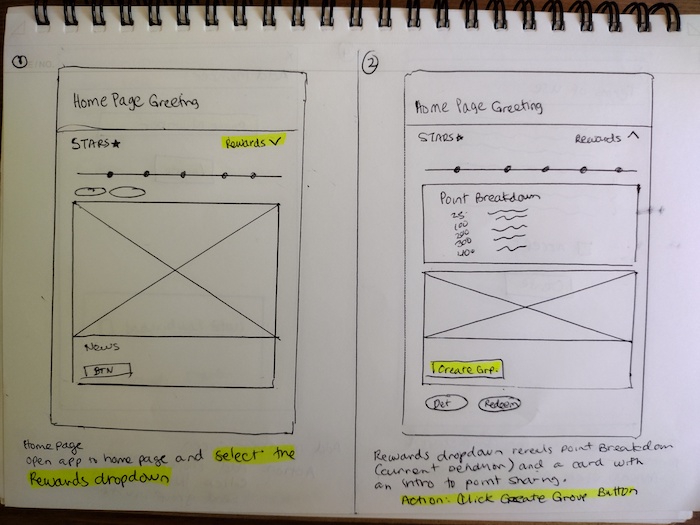 1
Home Page Greeting
STARS★
Rewards ∨
News
BTN
Home page
open app to home page and Select the
Rewards dropdown
2
Home Page Greeting
STARS★
Rewards ∧
Point Breakdown
25
100
200
300
400
Create Grp.
Det
Redeem
Rewards dropdown reveals point Breakdown
(current behavior) and a card with
an intro to point sharing.
Action: Click Create Group Button